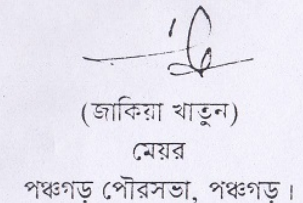 (জাকিয়া খাতুন)
মেয়র
পঞ্চগড় পৌরসভা, পঞ্চগড়।